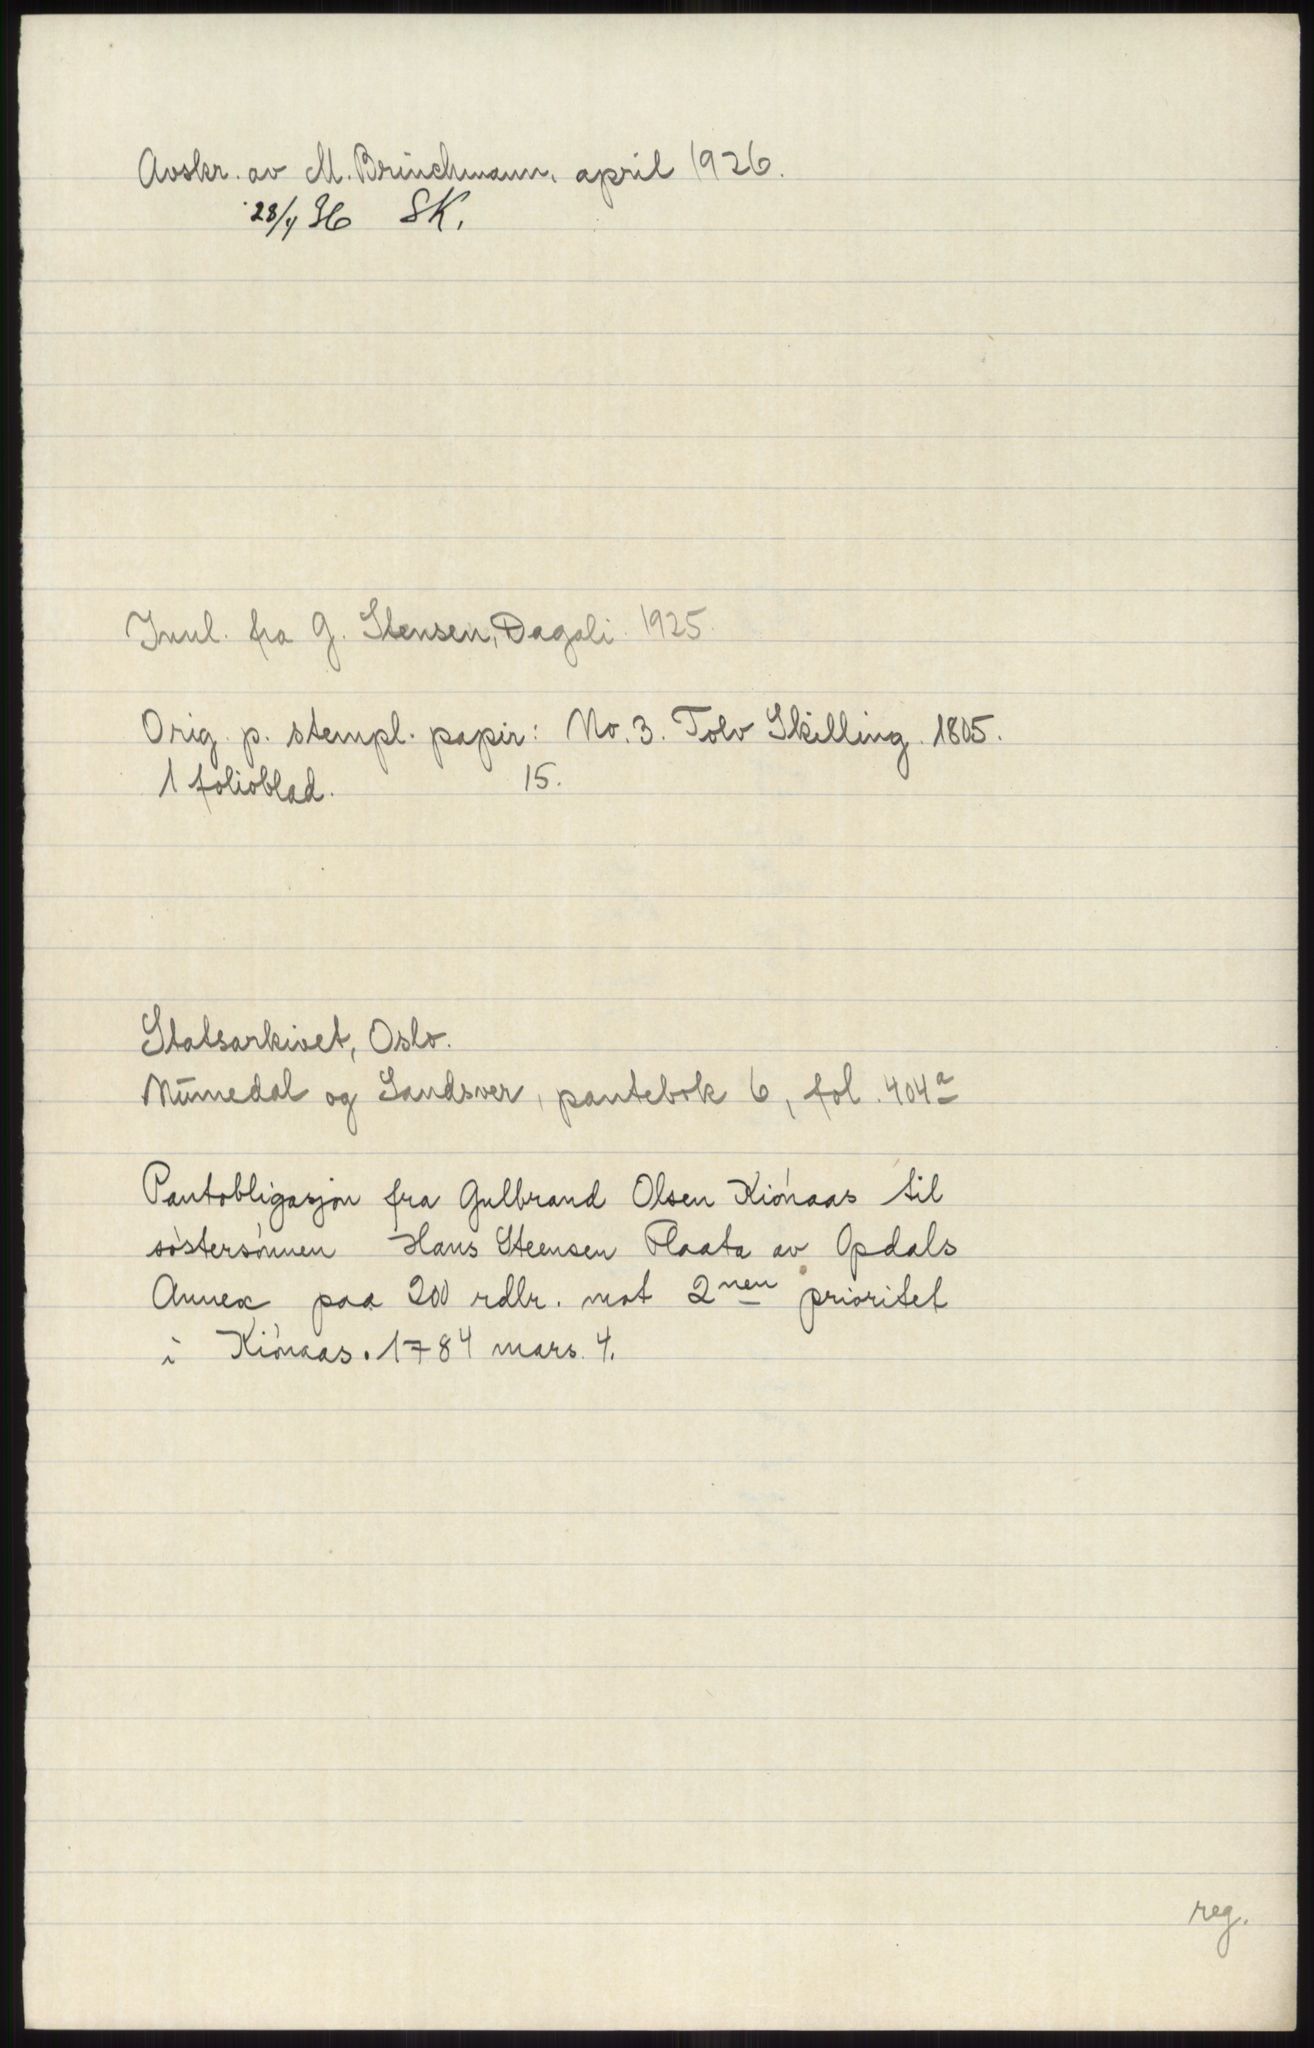 Avskr. av M. Brinchmann, april 1926.
28/4 36 SK.
Innl. fra G. Stensen, Dagali. 1925.
Orig. p. stempl. papir: No. 3. Tolv Skilling. 1805.
1 folioblad. 15.
Statsarkivet, Oslo.
Numedal og Sandsver, pantebok 6, fol. 404a
Pantobligasjon fra Gulbrand Olsen Kiónaas til
söstersönnen Hans Steensen Plaata av Opdals
Annex paa 200 rdlr. mot 2nen prioritet
i Kiónaas. 1784 mars 4.
reg.